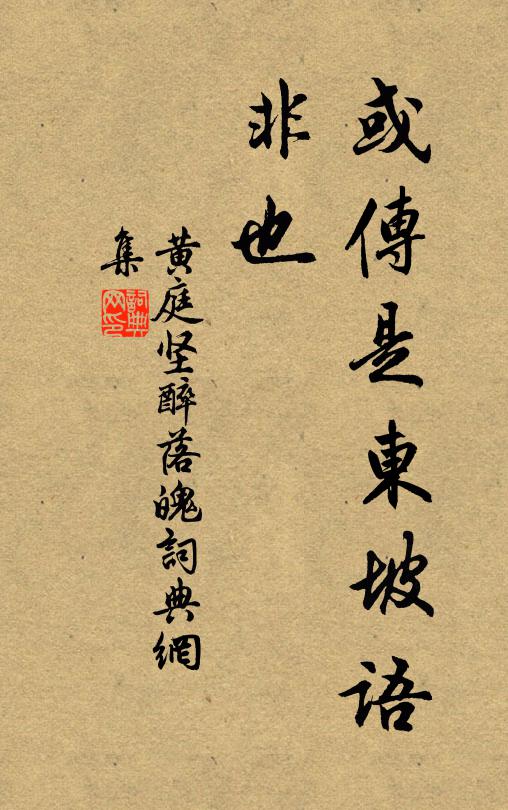 或傳是東坡語
非也
黄庭坚醉落魄詞典網
集
詞典
网印